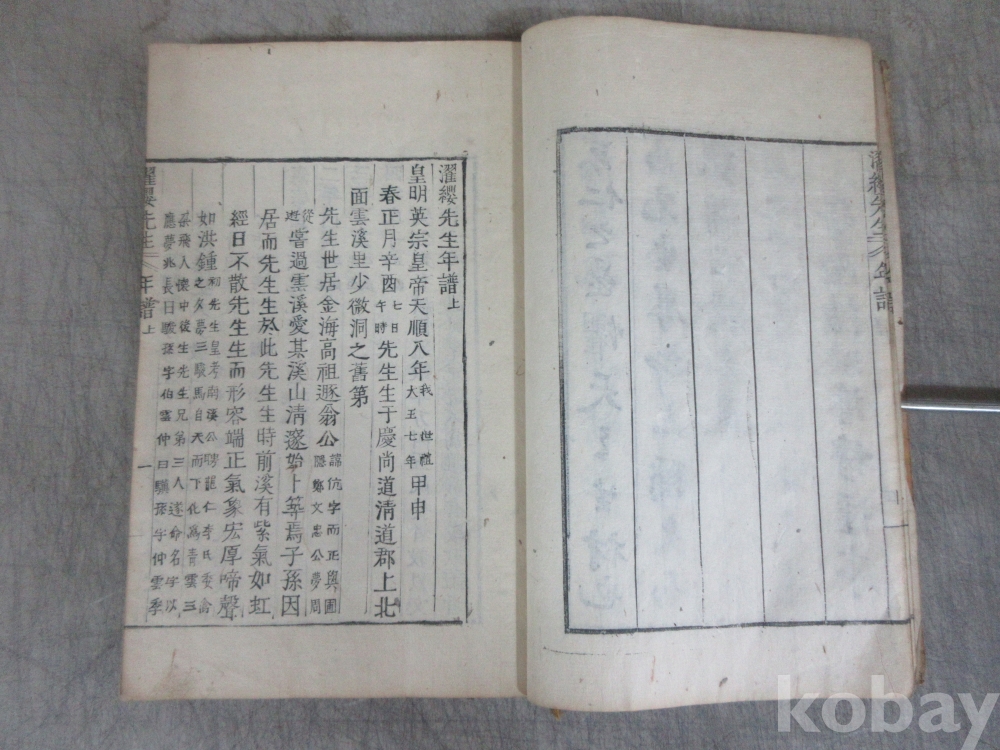 濯纓先生年譜
濯纓先生年譜上
皇明英宗皇帝天順八年我 世祖大王七年甲申
春正月辛酉七日午時先生生于慶尚道清道郡上北
面雲溪里少微洞之舊第
先生世居金海高祖遯翁公諱伉字而正與圃隱鄭文忠公夢周
從遊嘗過雲溪愛其溪山清邃始卜築焉子孫因
居而先生生於此先生生時前溪有紫氣如虹
經日不散先生生而形容端正氣象宏厚啼聲
如洪鍾初先生皇考南溪公聘龍仁李氏委禽之夕夢三駿馬自天而下化為青雲三
朶飛入懷中後生先生兄弟三人遂命名字以應夢兆長曰駿孫字伯雲仲曰驥孫字仲雲季
濯纓先生年譜上 一
kobay